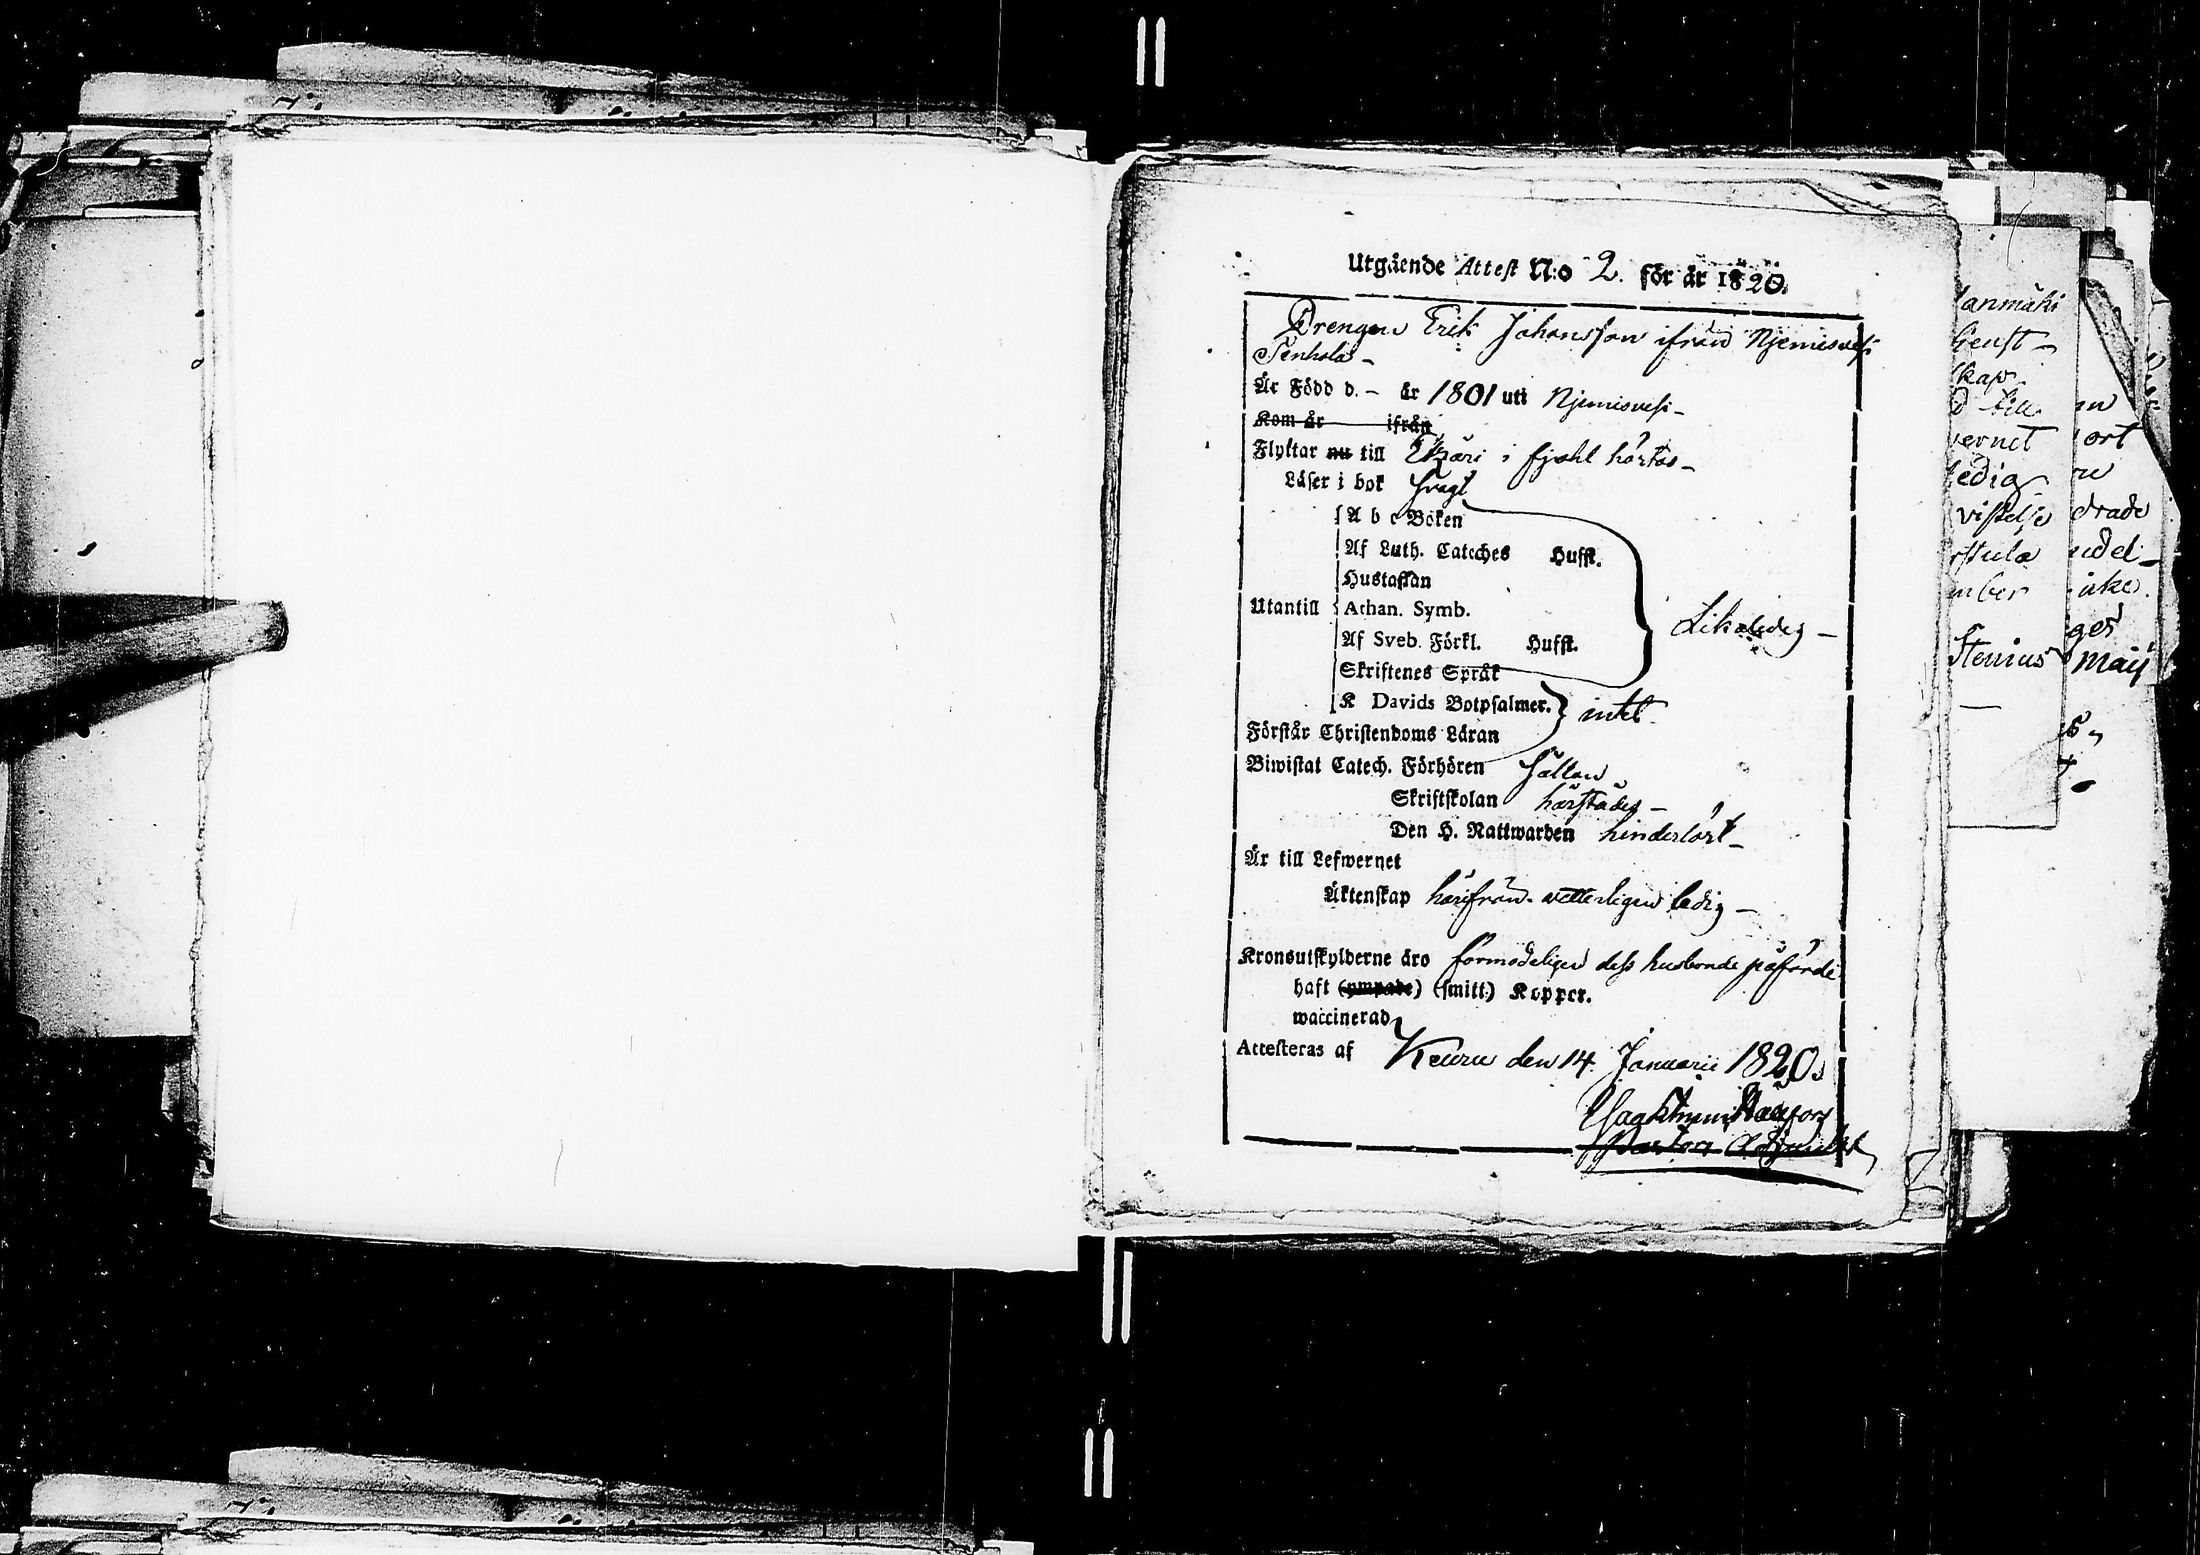 Utgående Attest N:o 2. för år 1820.
Drengen Erik Johansson ifrån Njemisvesi
Penhola –
Är Född d. – år 1801 uti Njemisvesi –
Kom år ifrån
Flyktar nu till i fjohl höstas –
Läser i bok svagt
A b c Boken
Af Luth. Cateches Hufst.
Hustaflan
Utantill Athan. Symb.
Likaledes –
Af Sveb. Förkl. Hufst.
Skriftenes Språk
K Davids Botpsalmer. intet
Förstår Christendoms Läran
Biwistat Catech. Förhören sällan
Skriftskolan härstädes –
Den H. Nattwarden hinderlöst –
Är till Lefwernet
Äktenskap härifrån vetterligen ledig –
Kronoutskylderne äro förmodeligen dess husbonde påförde
haft (ympade) (smitt.) Koppor.
waccinerad
Attesteras af Keuru den 14. Januarii 1820.
Pastors Adjunct
anmäki
tenst –
skap
till
vernet
ledig
vistelse
mber
Stenius
ort
drade
udet –
icke.
Maij